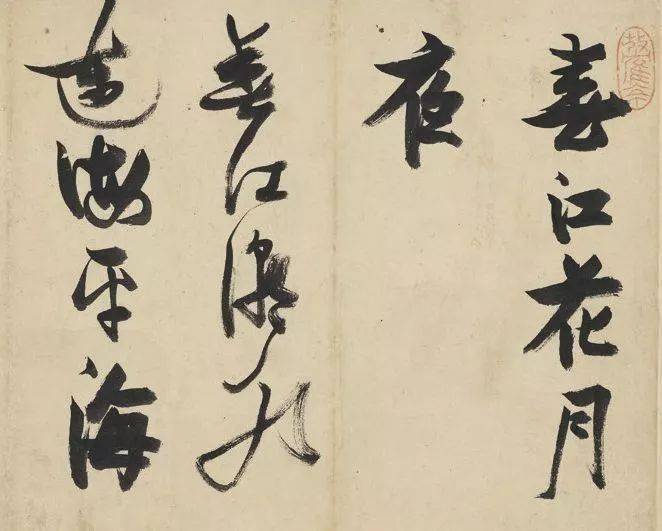 春江花月
夜
春江潮水
連海平海